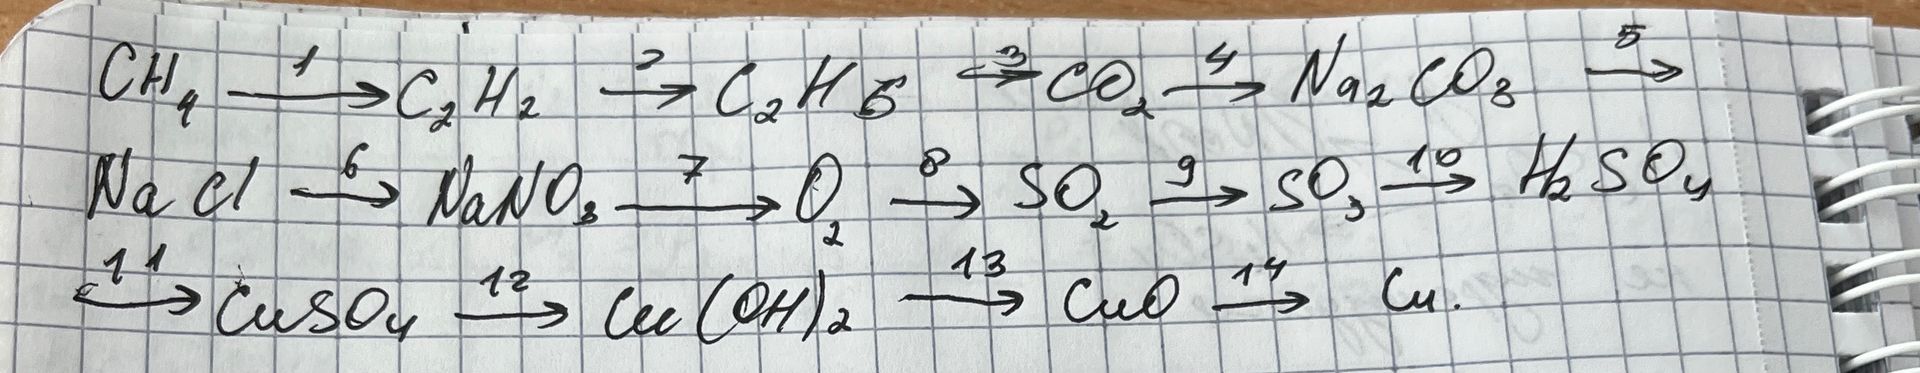 CH₄ —1→ C₂H₂ —2→ C₂H6 —3→ CO₂ —4→ Na₂CO₃ —5→
NaCl —6→ NaNO₃ —7→ O₂ —8→ SO₂ —9→ SO₃ —10→ H₂SO₄
—11→ CuSO₄ —12→ Cu(OH)₂ —13→ CuO —14→ Cu.